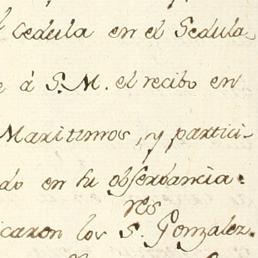 cedula en el Sedula
e á S.M. el recibo en
Maritimos, y partici-
do en su observancia.
res
icaron los S. Gonzalez